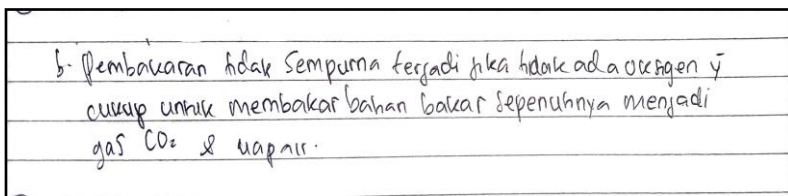 b. Pembakaran tidak sempurna terjadi jika tidak ada oksigen ȳ
cukup untuk membakar bahan bakar sepenuhnya menjadi
gas CO₂ & uap air.